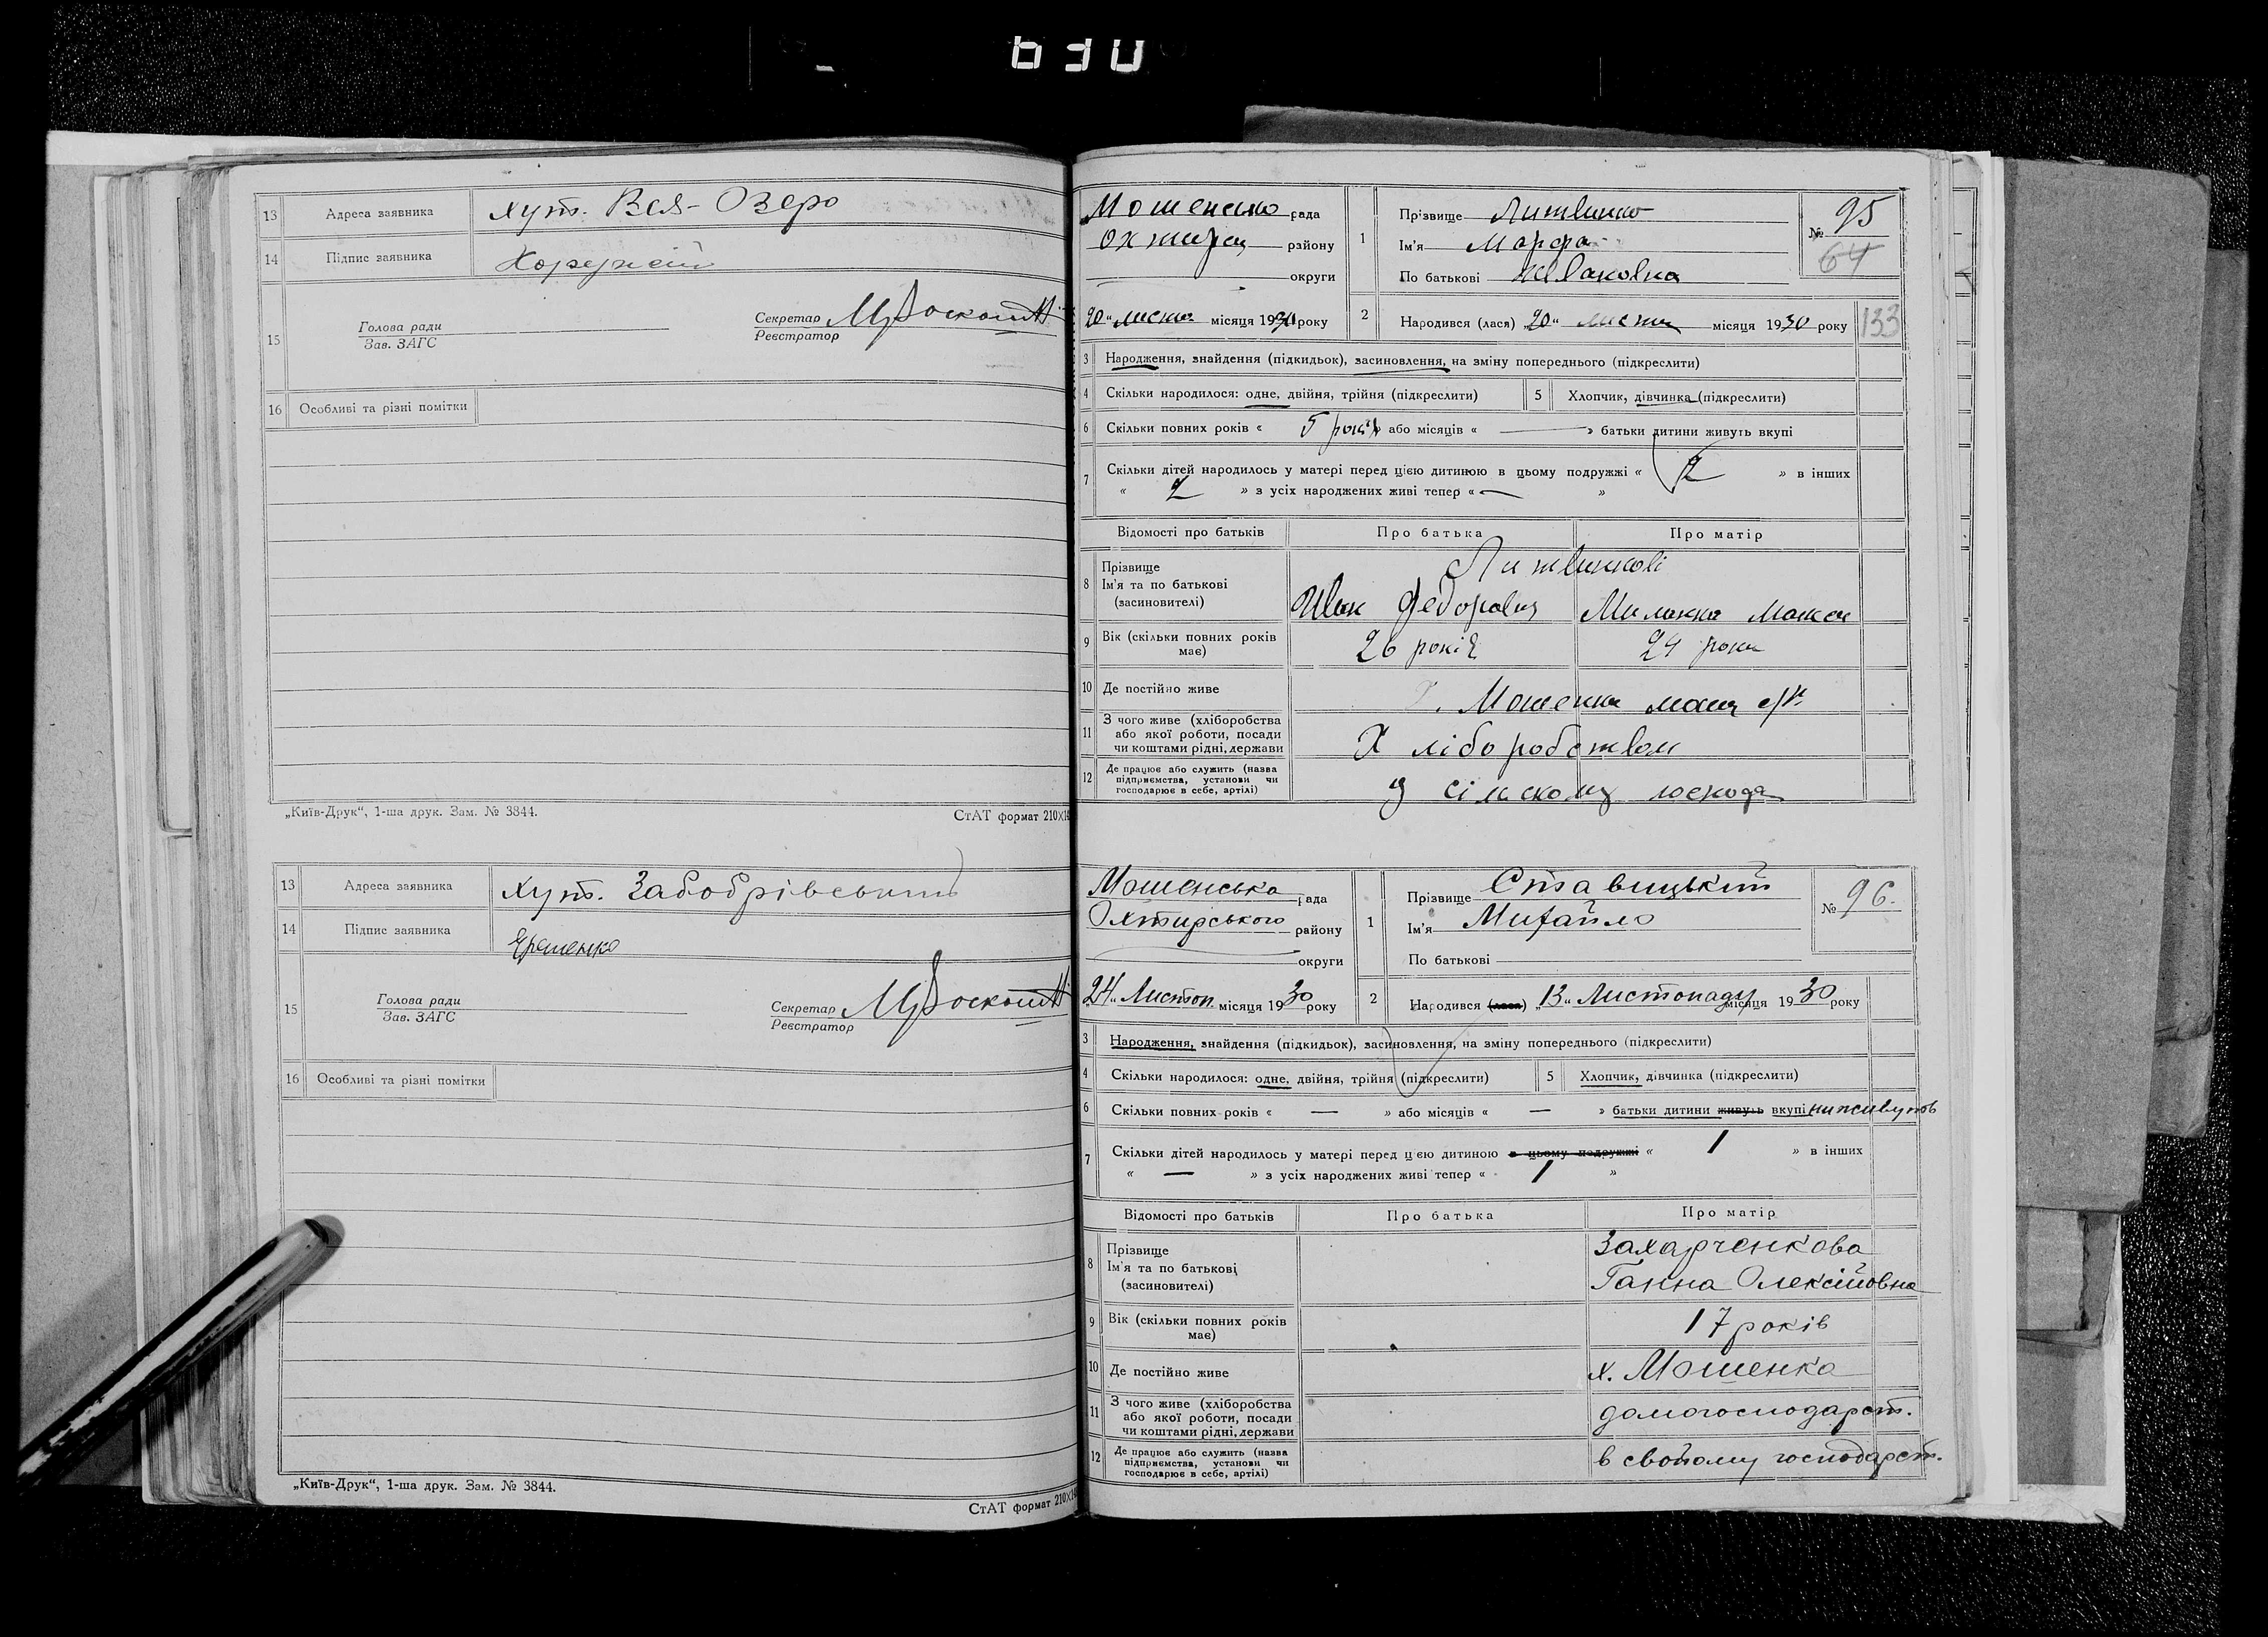 630
13 Адреса заявника хут. Вся-Озеро
14 Підпис заявника
15 Голова ради
Зав. ЗАГС
Секретар
Реєстратор
16 Особливі та різні помітки
„Київ-Друк“, 1-ша друк. Зам. № 3844.
СтАТ формат 210×14
13 Адреса заявника хут. Забобрівський
14 Підпис заявника Ярошенко
15 Голова ради
Зав. ЗАГС
Секретар
Реєстратор
16 Особливі та різні помітки
„Київ-Друк“, 1-ша друк. Зам. № 3844.
СтАТ формат 210×14
Мошенсько рада
Охтирец району
округи
„20“ листоп місяця 1930 року
1 Прізвище Литвинко
Ім'я Марфа
По батькові Івановна
№ 95
64
2 Народився (лася) „20“ листоп місяця 1930 року
133
3 Народження, знайдення (підкидьок), засиновлення, на зміну попереднього (підкреслити)
4 Скільки народилося: одне, двійня, трійня (підкреслити) 5 Хлопчик, дівчинка (підкреслити)
6 Скільки повних років « 5 років » або місяців « — » батьки дитини живуть вкупі
7 Скільки дітей народилось у матері перед цією дитиною в цьому подружжі « 2 » в інших
« 2 » з усіх народжених живі тепер « — »
Відомості про батьків Про батька Про матір
8 Прізвище
Ім'я та по батькові
(засиновителі)
Литвинкові
Иван Федорович Миланка Макси
9 Вік (скільки повних років
має)
26 років 24 роки
10 Де постійно живе Х. Мошенка
11 З чого живе (хліборобства
або якої роботи, посади
чи коштами рідні, держави
Хліборобством
12 Де працює або служить (назва
підприємства, установи чи
господарює в себе, артілі)
У сільскому господа
Мошенська рада
Охтирського району
округи
„24“ Листоп. місяця 1930 року
1 Прізвище Ставицький
Ім'я Михайло
По батькові
№ 96.
2 Народився (лася) „13“ Листопаду місяця 1930 року
3 Народження, знайдення (підкидьок), засиновлення, на зміну попереднього (підкреслити)
4 Скільки народилося: одне, двійня, трійня (підкреслити) 5 Хлопчик, дівчинка (підкреслити)
6 Скільки повних років « — » або місяців « — » батьки дитини живуть вкупі ни живуть
7 Скільки дітей народилось у матері перед цією дитиною в цьому подружжі « 1 » в інших
« — » з усіх народжених живі тепер « 1 »
Відомості про батьків Про батька Про матір
8 Прізвище
Ім'я та по батькові
(засиновителі)
Захарченкова
Ганна Олексійовна
9 Вік (скільки повних років
має)
17 років
10 Де постійно живе х. Мошенка
11 З чого живе (хліборобства
або якої роботи, посади
чи коштами рідні, держави
домогосподарст.
12 Де працює або служить (назва
підприємства, установи чи
господарює в себе, артілі)
в свойому господарст.